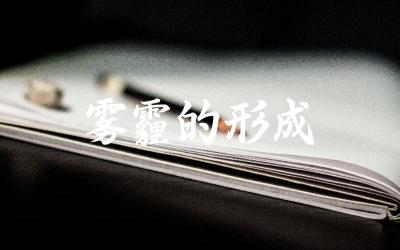 雾霾的形成